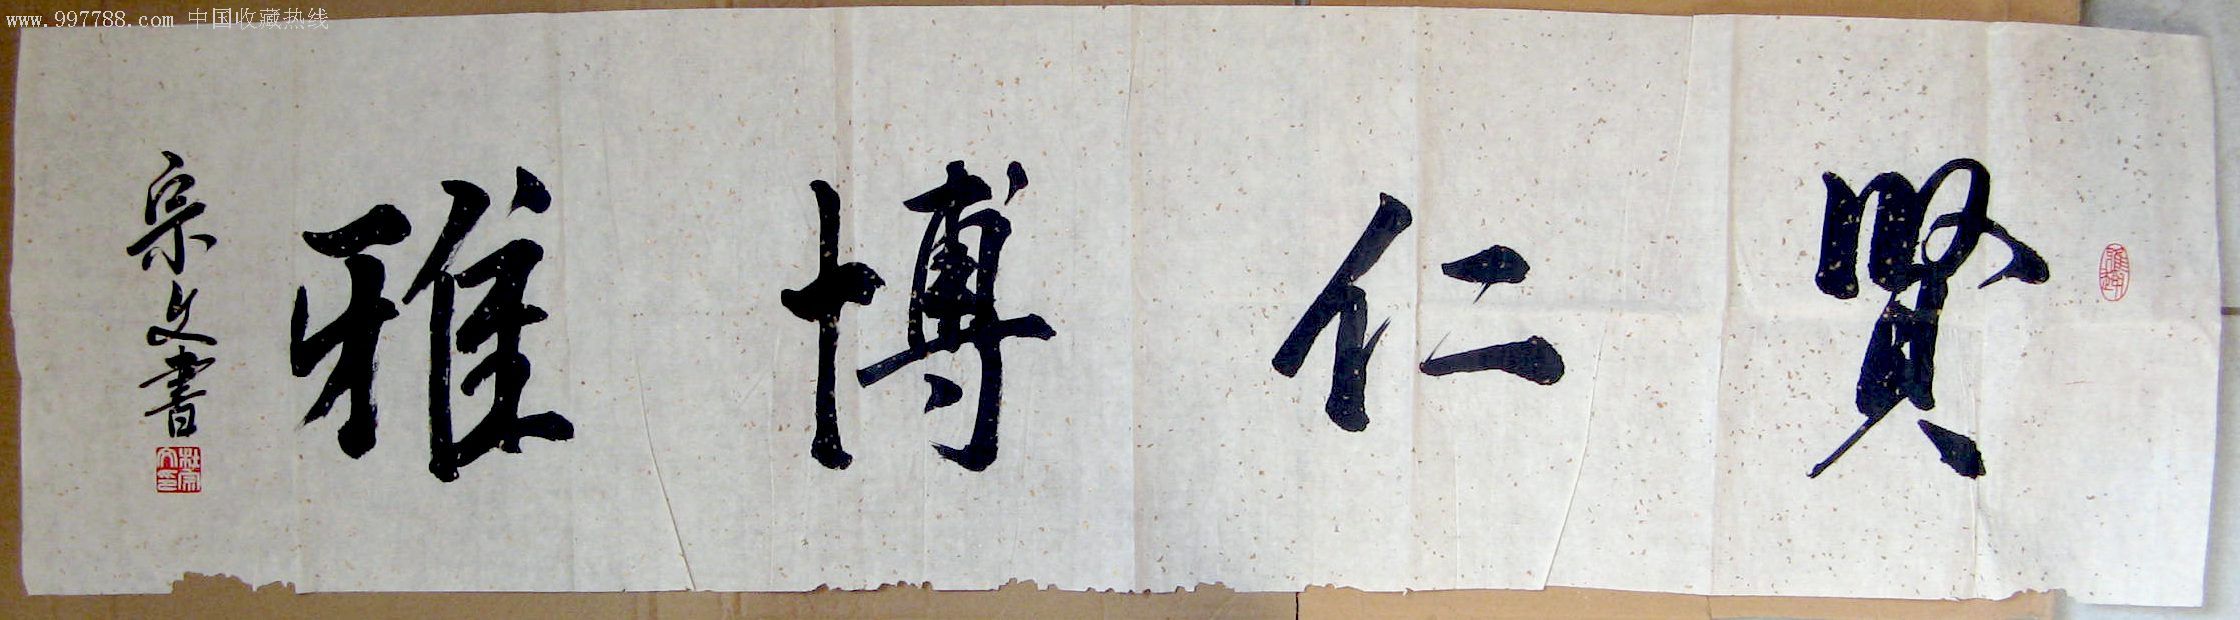 www.997788.com 中国收藏热线
賢仁博雅
宗文書
杜宗文印